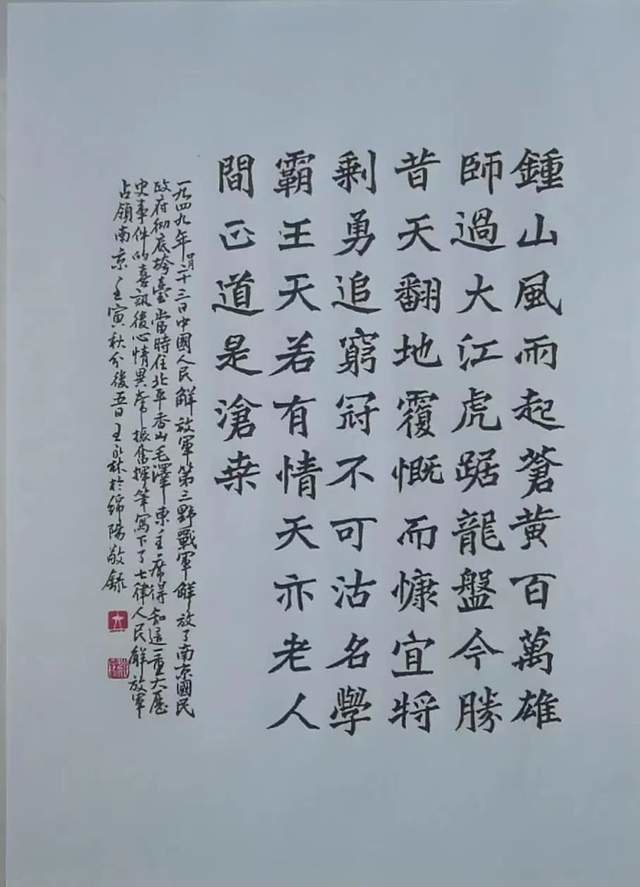 鍾山風雨起蒼黃百萬雄
師過大江虎踞龍盤今勝
昔天翻地覆慨而慷宜將
剩勇追窮冠不可沽名學
霸王天若有情天亦老人
間正道是滄桒
一九四九年四月二十三日中國人民解放軍第三野戰軍解放了南京國民
政府彻底垮臺當時住北平香山毛澤東主席得知這一重大歷
史事件的喜訊後心情異常振奮揮筆寫下了七律人民解放軍
占領南京壬寅秋分後五日王永林於綿陽敬録